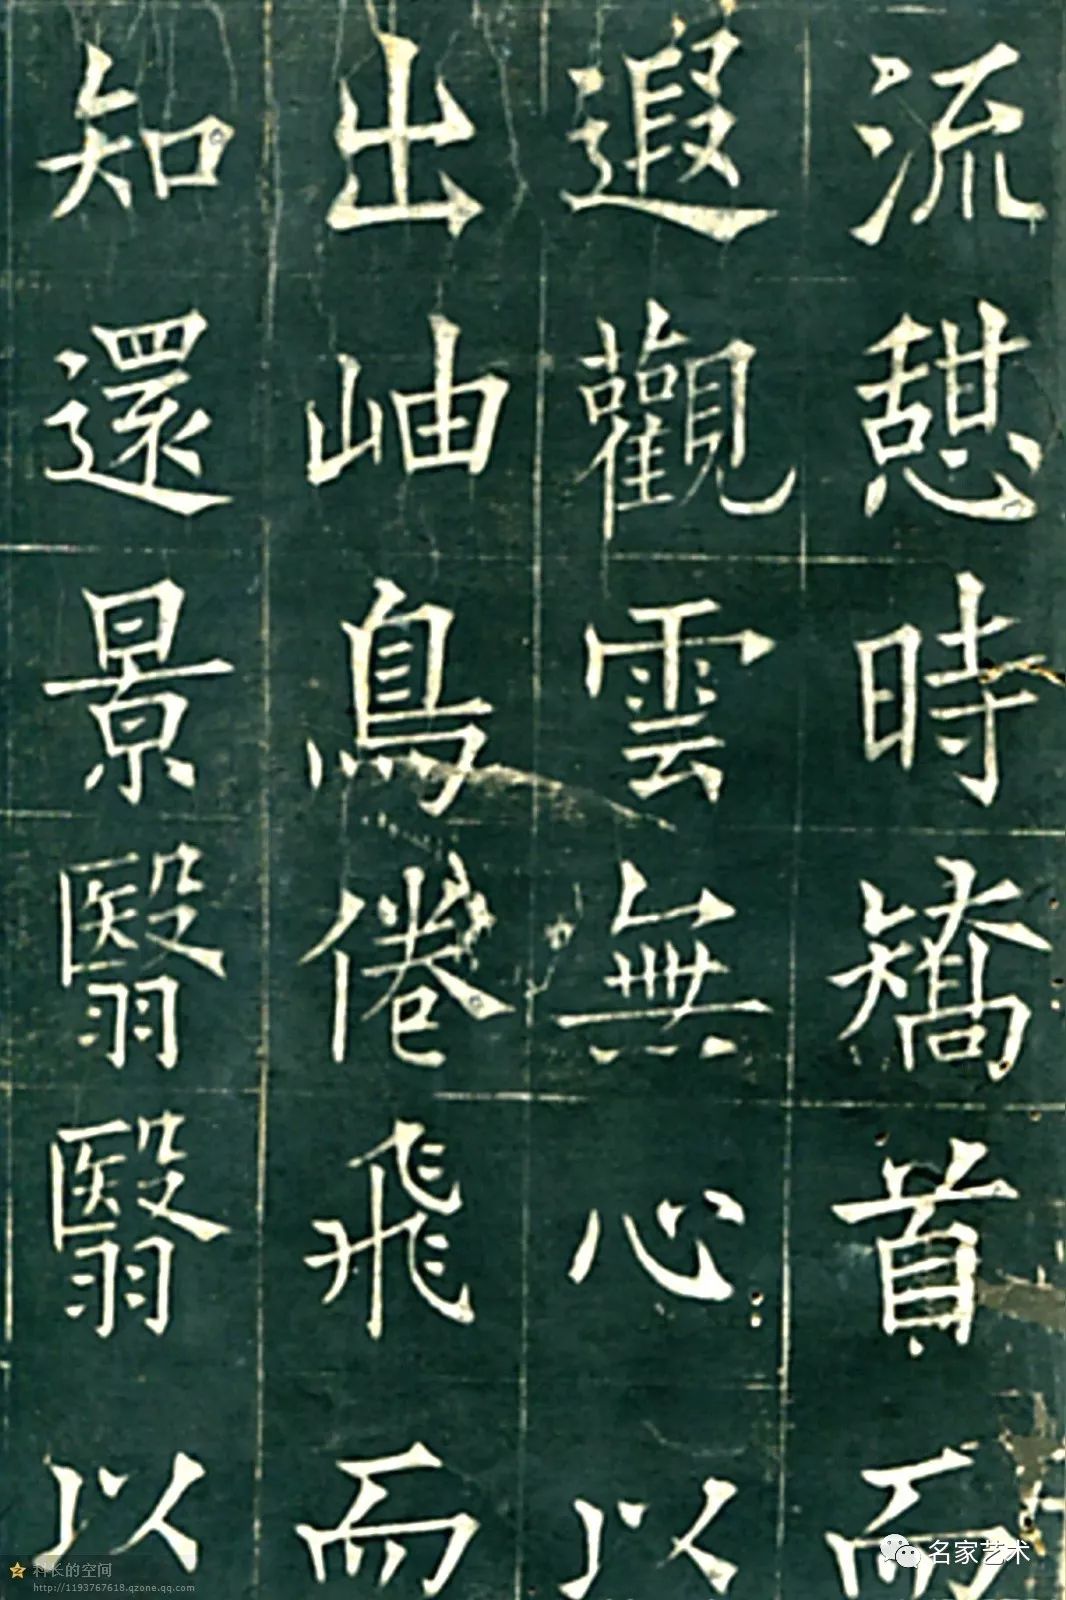 流憩時矯首而
遐觀雲無心以
出岫鳥倦飛而
知還景翳翳以
科长的空间
http://1193767618.qzone.qq.com
名家艺术